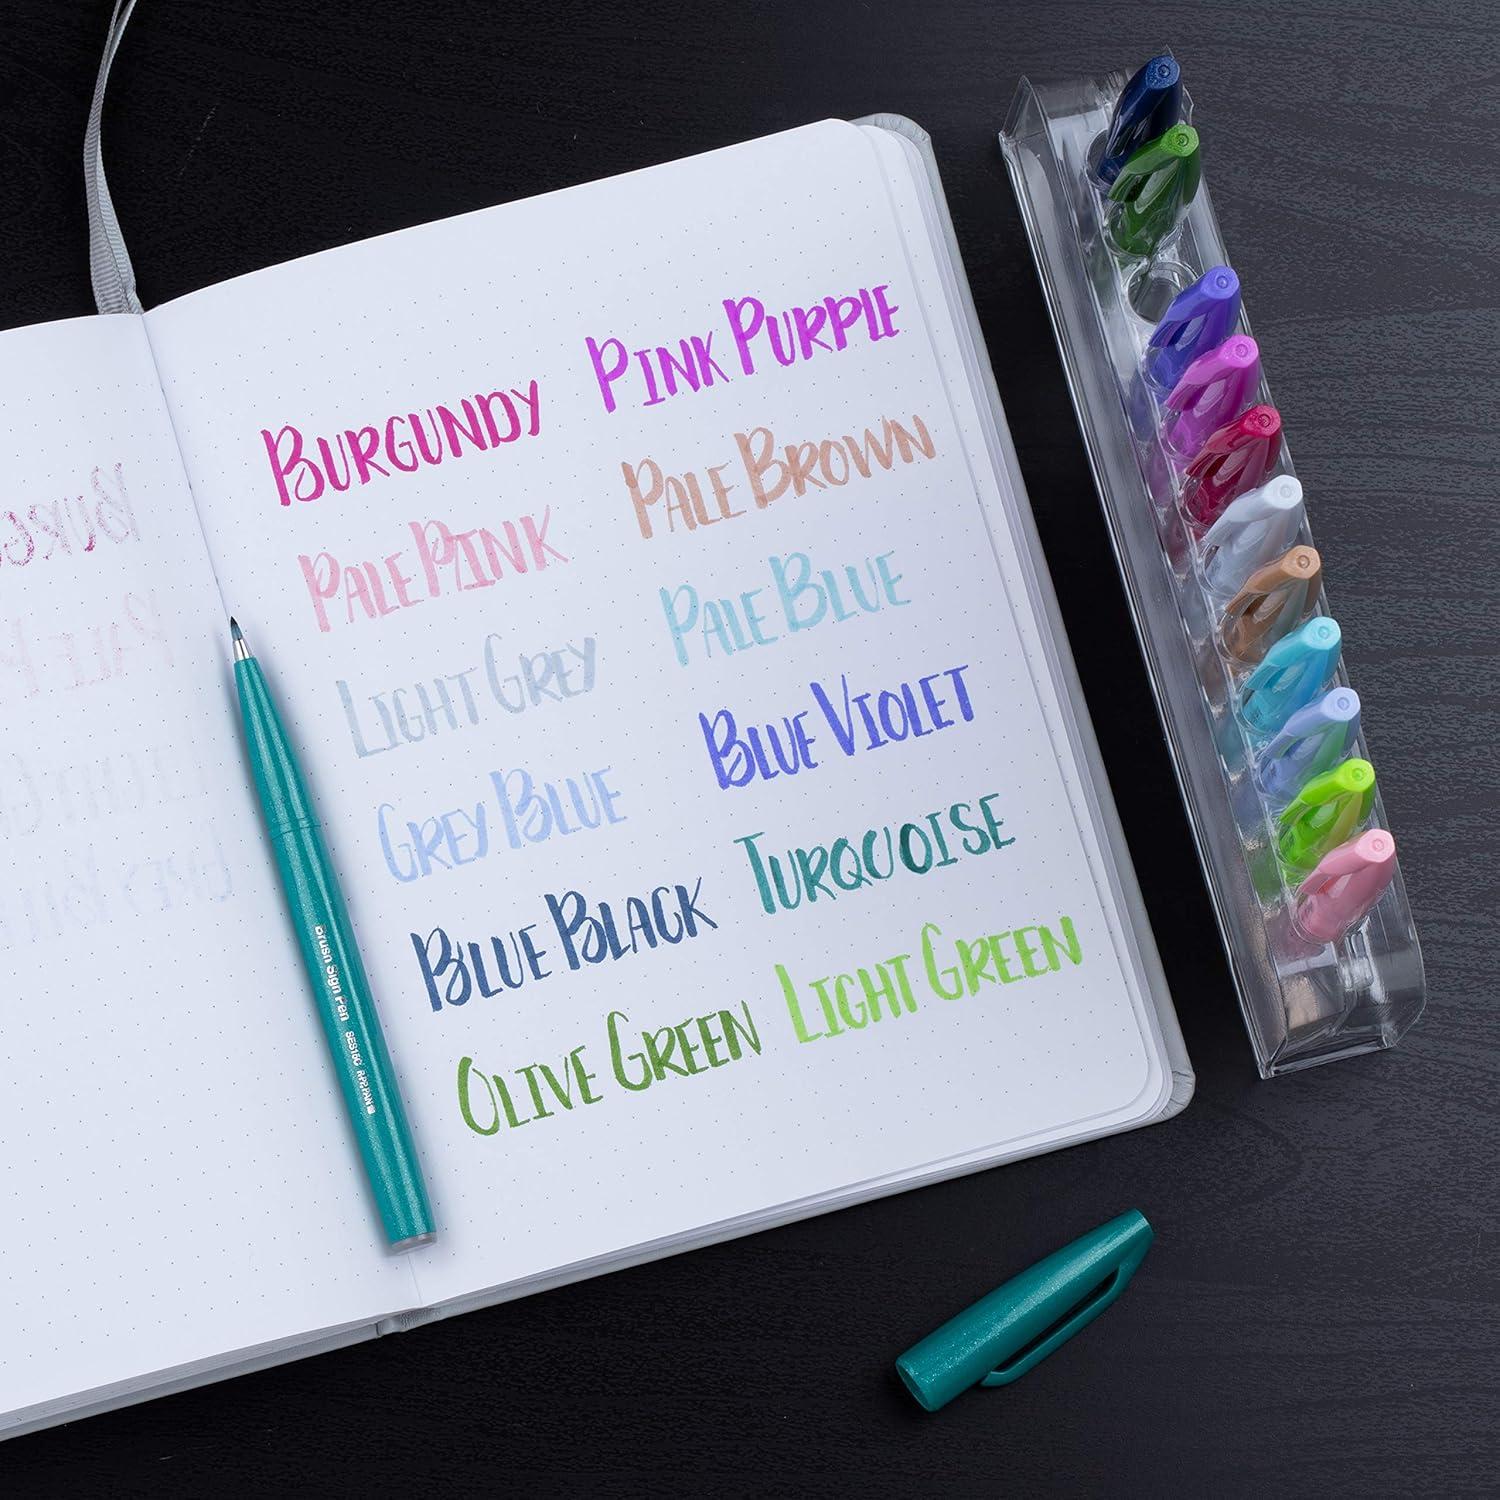 BURGUNDY
PINK PURPLE
PALE PINK
PALE BROWN
LIGHT GREY
PALE BLUE
GREY BLUE
BLUE VIOLET
BLUE BLACK
TURQUOISE
OLIVE GREEN
LIGHT GREEN
Brush Sign Pen SES15C A.P.P.PAN